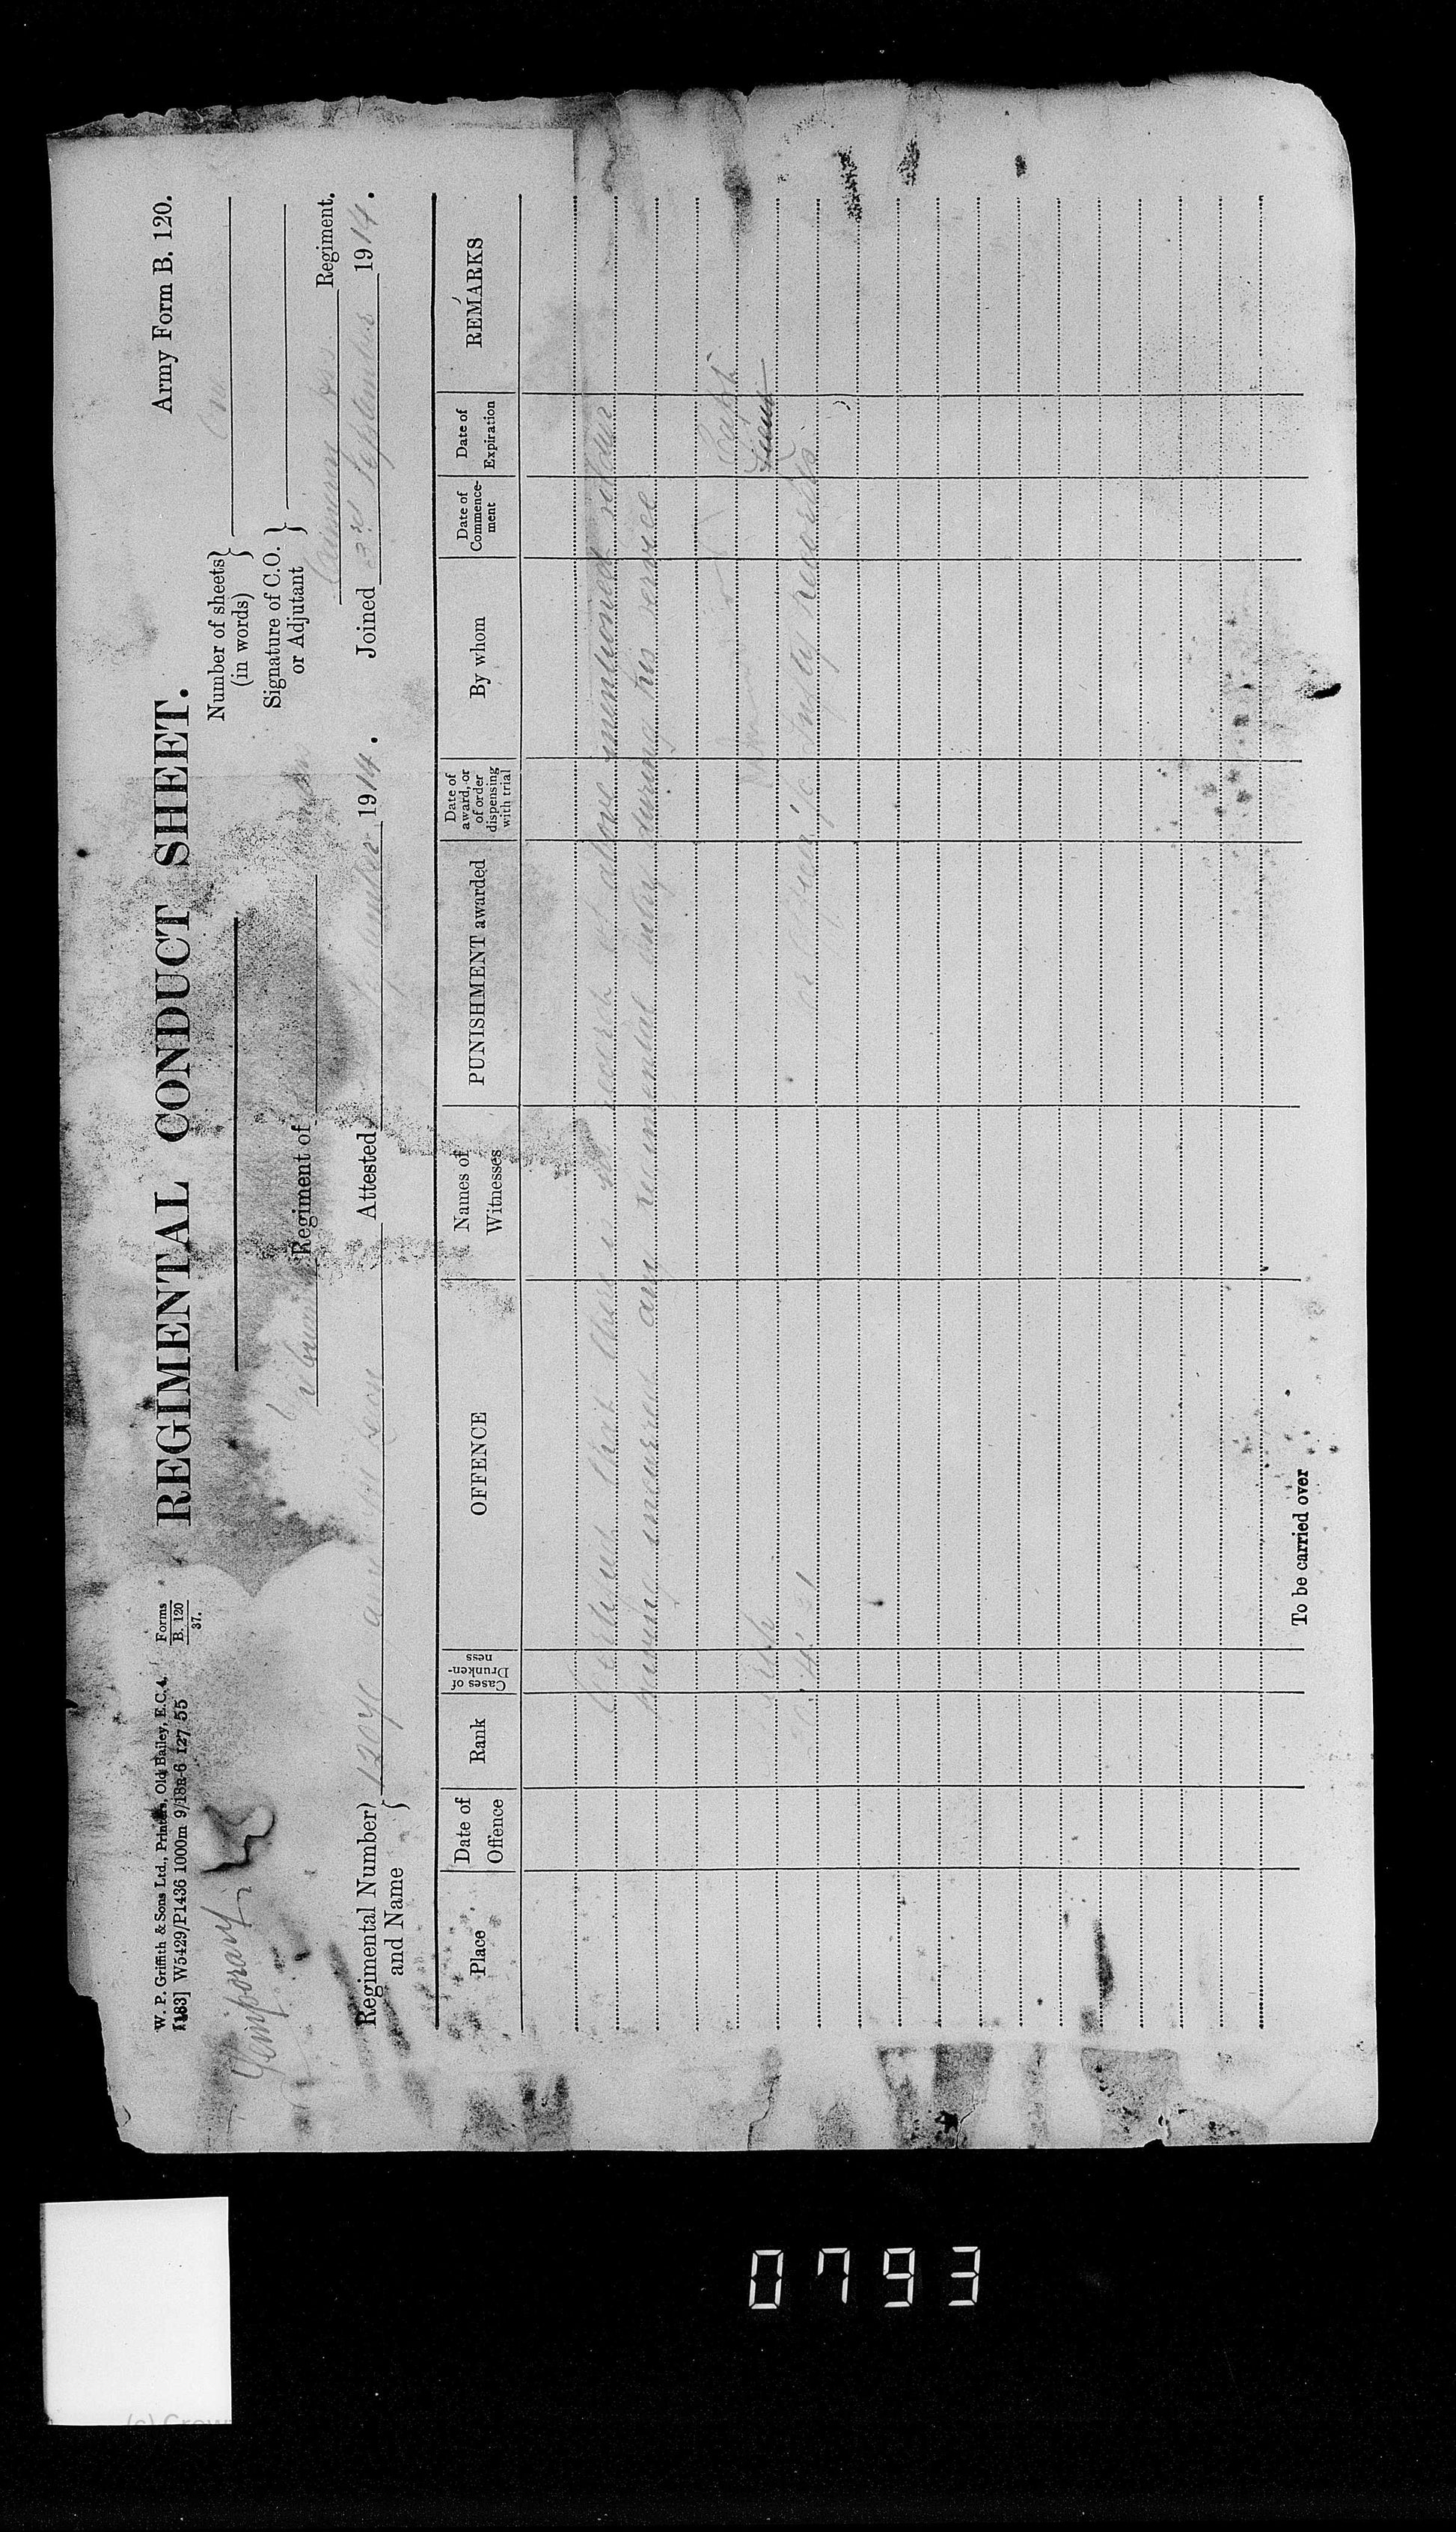 W. P. Griffith & Sons Ltd., Printers, Old Bailey, E.C.4.
[183] W5429/P1436 1000m 9/18R-6 127 55
Forms
B. 120
37.
REGIMENTAL CONDUCT SHEET.
Army Form B. 120.
Temporary
Number of sheets }
(in words) }
Signature of C.O. }
or Adjutant }
Regiment of
Regiment.
Regimental Number }
and Name }
Attested
1914.
Joined 3rd September 1914.
Place
Date of
Offence
Rank
Cases of
Drunken-
ness
OFFENCE
Names of
Witnesses
PUNISHMENT awarded
Date of
award, or
of order
dispensing
with trial
By whom
Date of
Commence-
ment
Date of
Expiration
REMARKS
that there is no record of above mentioned
having incurred any regimental entry during his service
Perth
Capt
Lieut
20.4.21
Infty Records
To be carried over
0793
(c) Crow